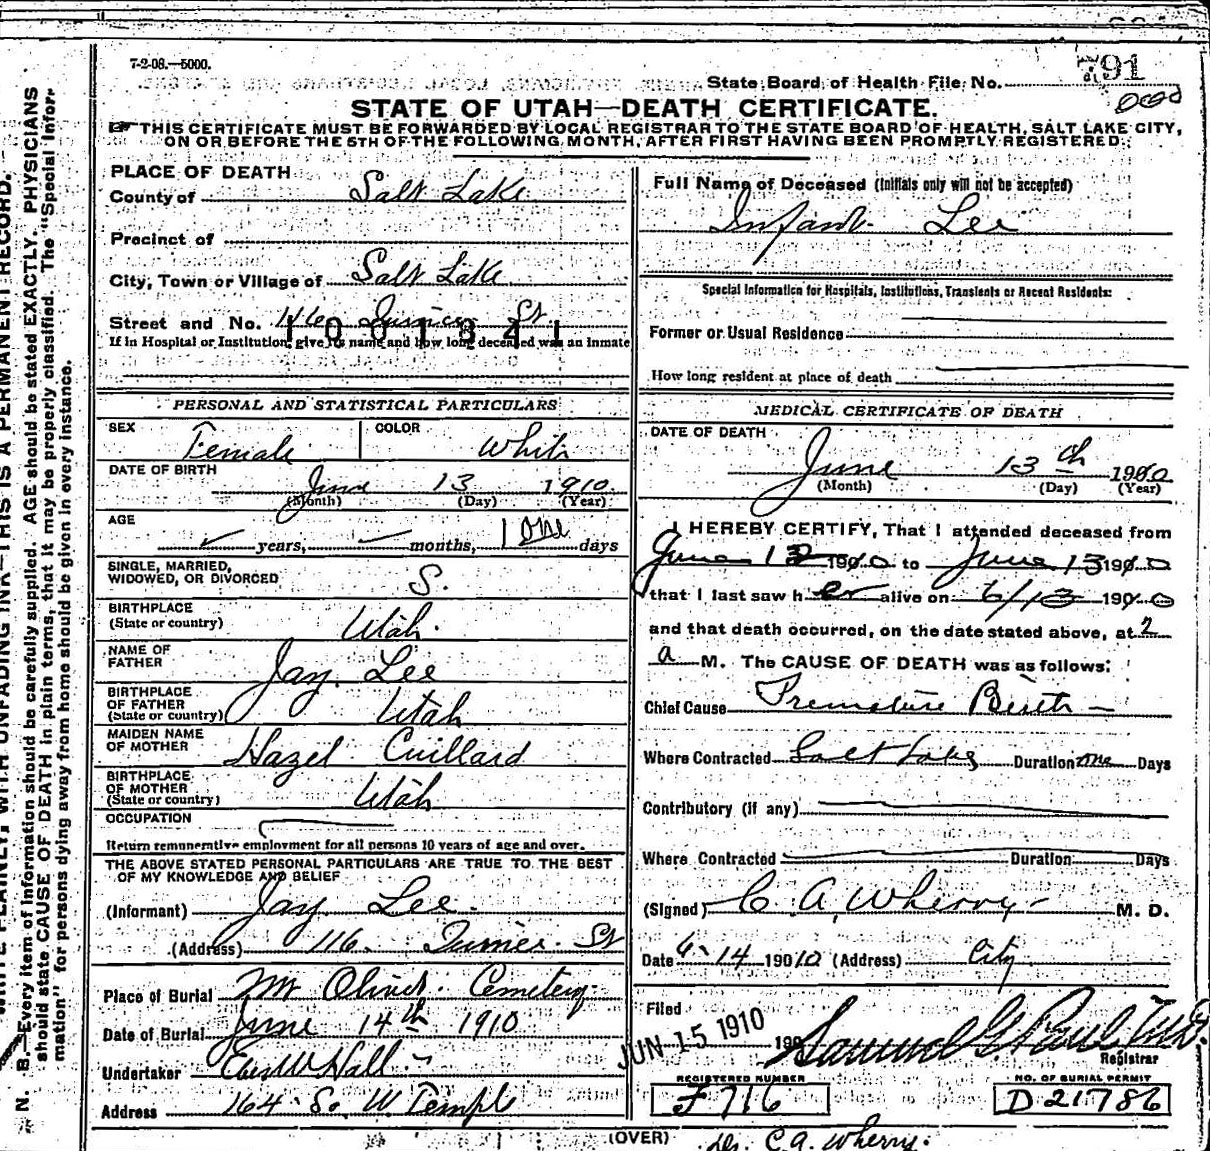 7-2-08.—5000.
State Board of Health File No. 791
STATE OF UTAH—DEATH CERTIFICATE.
☞ THIS CERTIFICATE MUST BE FORWARDED BY LOCAL REGISTRAR TO THE STATE BOARD OF HEALTH, SALT LAKE CITY,
ON OR BEFORE THE 5TH OF THE FOLLOWING MONTH, AFTER FIRST HAVING BEEN PROMPTLY REGISTERED.
PLACE OF DEATH
County of Salt Lake
Precinct of
City, Town or Village of Salt Lake
Street and No. 116 St
1001341
If in Hospital or Institution, give its name and how long deceased was an inmate
PERSONAL AND STATISTICAL PARTICULARS
SEX Female COLOR White
DATE OF BIRTH
June 13 1910
(Month) (Day) (Year)
AGE
years, months, 1 one days
SINGLE, MARRIED,
WIDOWED, OR DIVORCED S.
BIRTHPLACE
(State or country) Utah.
NAME OF
FATHER Jay Lee
BIRTHPLACE
OF FATHER
(State or country) Utah
MAIDEN NAME
OF MOTHER Hazel Cuillard
BIRTHPLACE
OF MOTHER
(State or country) Utah
OCCUPATION
Return remunerative employment for all persons 10 years of age and over.
THE ABOVE STATED PERSONAL PARTICULARS ARE TRUE TO THE BEST
OF MY KNOWLEDGE AND BELIEF
(Informant) Jay Lee.
(Address) 116 St
Place of Burial Mt Olivet Cemetery
Date of Burial June 14th 1910
Undertaker Hall
Address 164 So. W Temple
Full Name of Deceased (Initials only will not be accepted)
Infant Lee
Special Information for Hospitals, Institutions, Transients or Recent Residents:
Former or Usual Residence
How long resident at place of death
MEDICAL CERTIFICATE OF DEATH
DATE OF DEATH
June 13th 1910
(Month) (Day) (Year)
I HEREBY CERTIFY, That I attended deceased from
June 13 1910 to June 13 1910
that I last saw her alive on 6/13 1910
and that death occurred, on the date stated above, at 2
a M. The CAUSE OF DEATH was as follows:
Chief Cause Premature Birth —
Where Contracted Salt Lake Duration one Days
Contributory (if any)
Where Contracted Duration Days
(Signed) C. A. Wherry M. D.
Date 6-14 1910 (Address) City
Filed JUN 15 1910 190
Samuel G Paul M.D.
Registrar
REGISTERED NUMBER
F 716
NO. OF BURIAL PERMIT
D 21786
(OVER)
Dr. C. A. Wherry.
WRITE PLAINLY, WITH UNFADING INK—THIS IS A PERMANENT RECORD.
N. B.—Every item of information should be carefully supplied. AGE should be stated EXACTLY. PHYSICIANS
should state CAUSE OF DEATH in plain terms, that it may be properly classified. The "Special Infor-
mation" for persons dying away from home should be given in every instance.